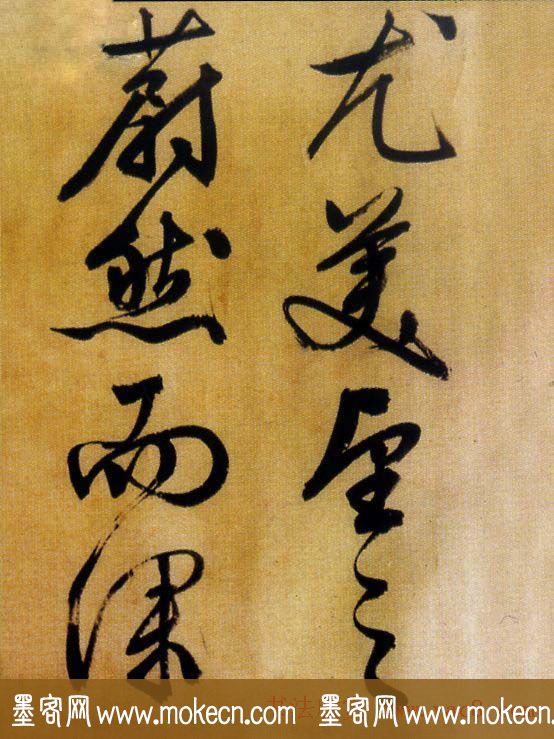 尤美望之
蔚然而深
墨客网 www.mokecn.com 墨客网 www.mokecn.com